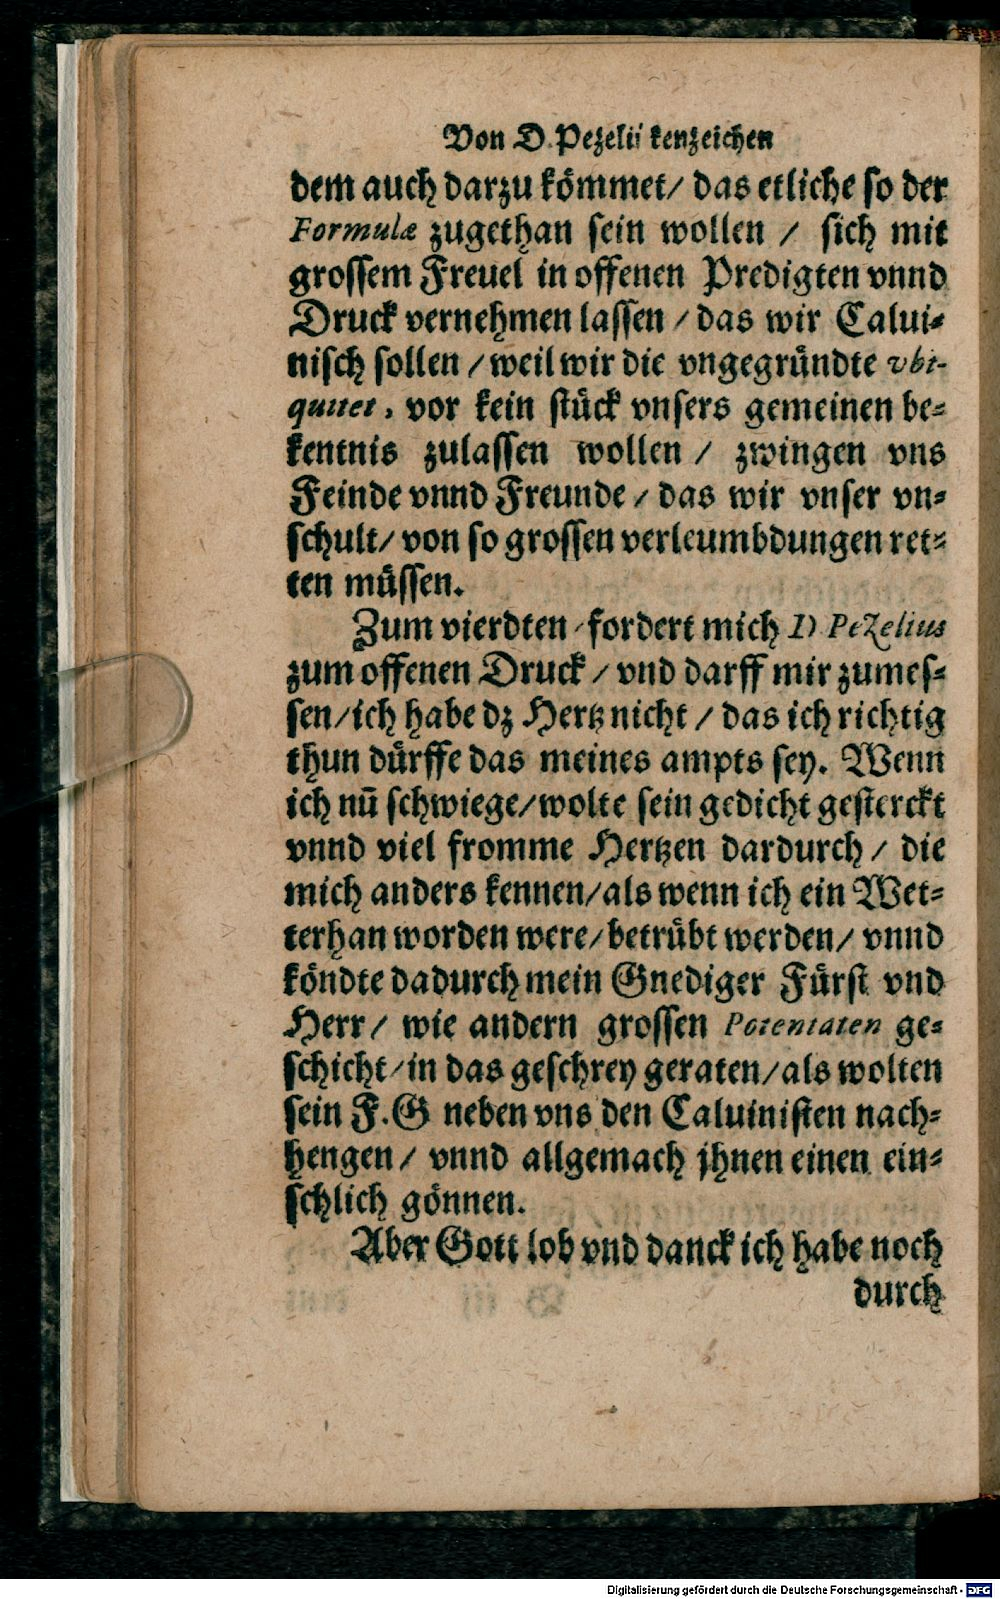 Von D. Pezelii kenzeichen
dem auch darzu kömmet/ das etliche so der
Formulæ zugethan sein wollen / sich mit
grossem Freuel in offenen Predigten vnnd
Druck vernehmen lassen / das wir Calui-
nisch sollen / weil wir die vngegründte vbi-
quitet, vor kein stück vnsers gemeinen be-
kentnis zulassen wollen / zwingen vns
Feinde vnnd Freunde / das wir vnser vn-
schult/ von so grossen verleumbdungen ret-
ten müssen.
Zum vierdten / fordert mich D Pezelius
zum offenen Druck / vnd darff mir zumes-
sen/ich habe dz Hertz nicht / das ich richtig
thun dürffe das meines ampts sey. Wenn
ich nū schwiege/wolte sein gedicht gesterckt
vnnd viel fromme Hertzen dardurch / die
mich anders kennen/als wenn ich ein Wet-
terhan worden were/betrübt werden/ vnnd
köndte dadurch mein Gnediger Fürst vnd
Herr/ wie andern grossen Potentaten ge-
schicht/in das geschrey geraten/als wolten
sein F.G neben vns den Caluinisten nach-
hengen/ vnnd allgemach jhnen einen ein-
schlich gönnen.
Aber Gott lob vnd danck ich habe noch
durch
Digitalisierung gefördert durch die Deutsche Forschungsgemeinschaft - DFG